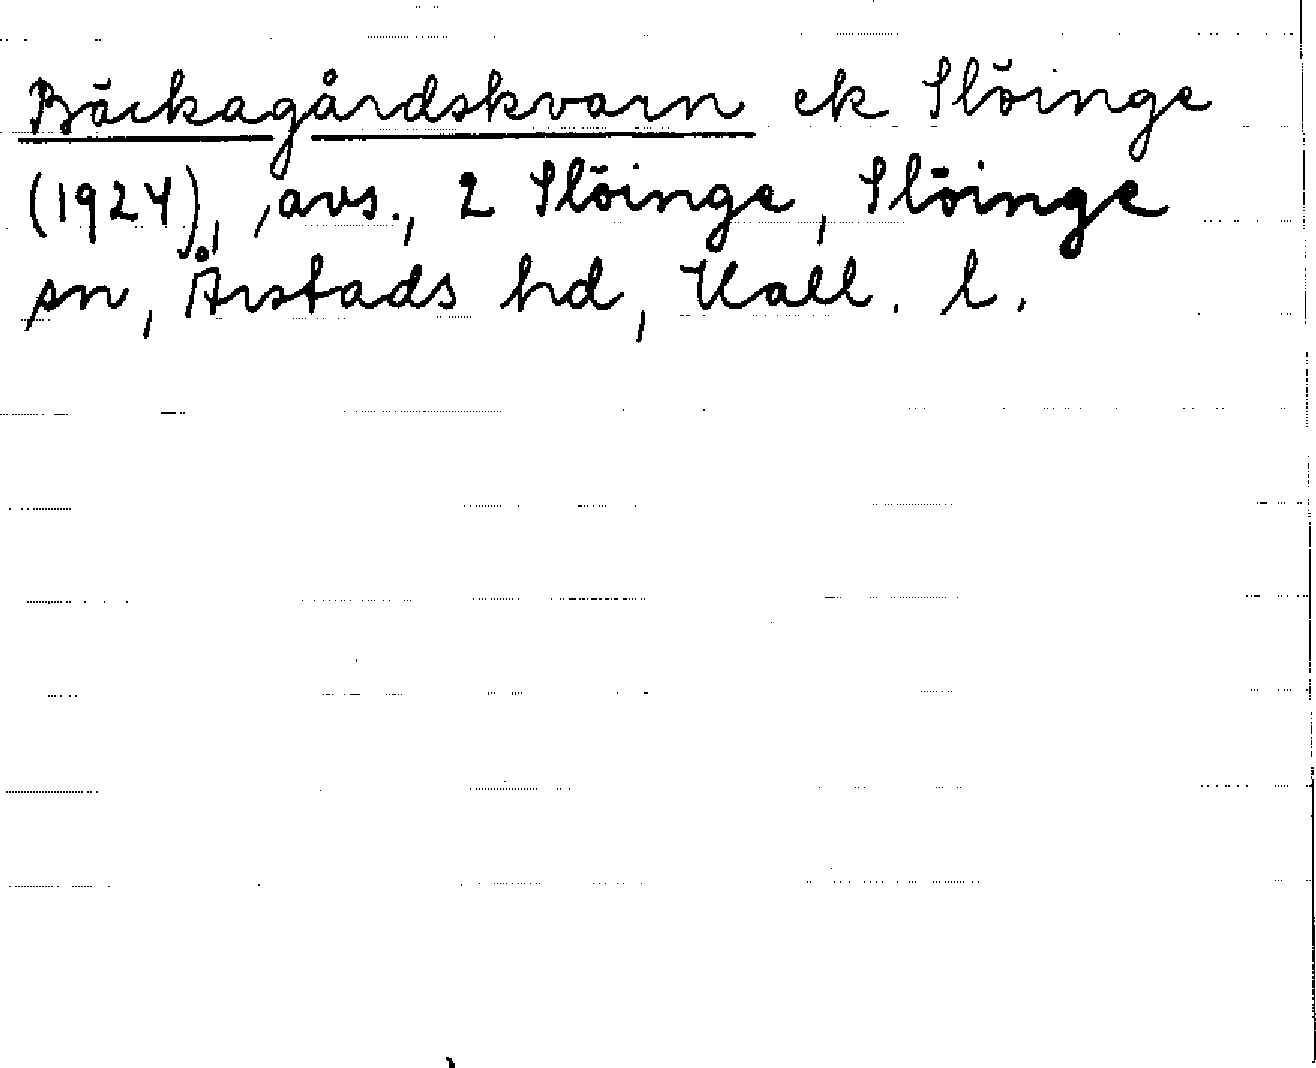 Bäckagårdskvarn ek Slöinge
(1924), avs., 2 Slöinge, Slöinge
sn, Årstads hd, Hall. l.